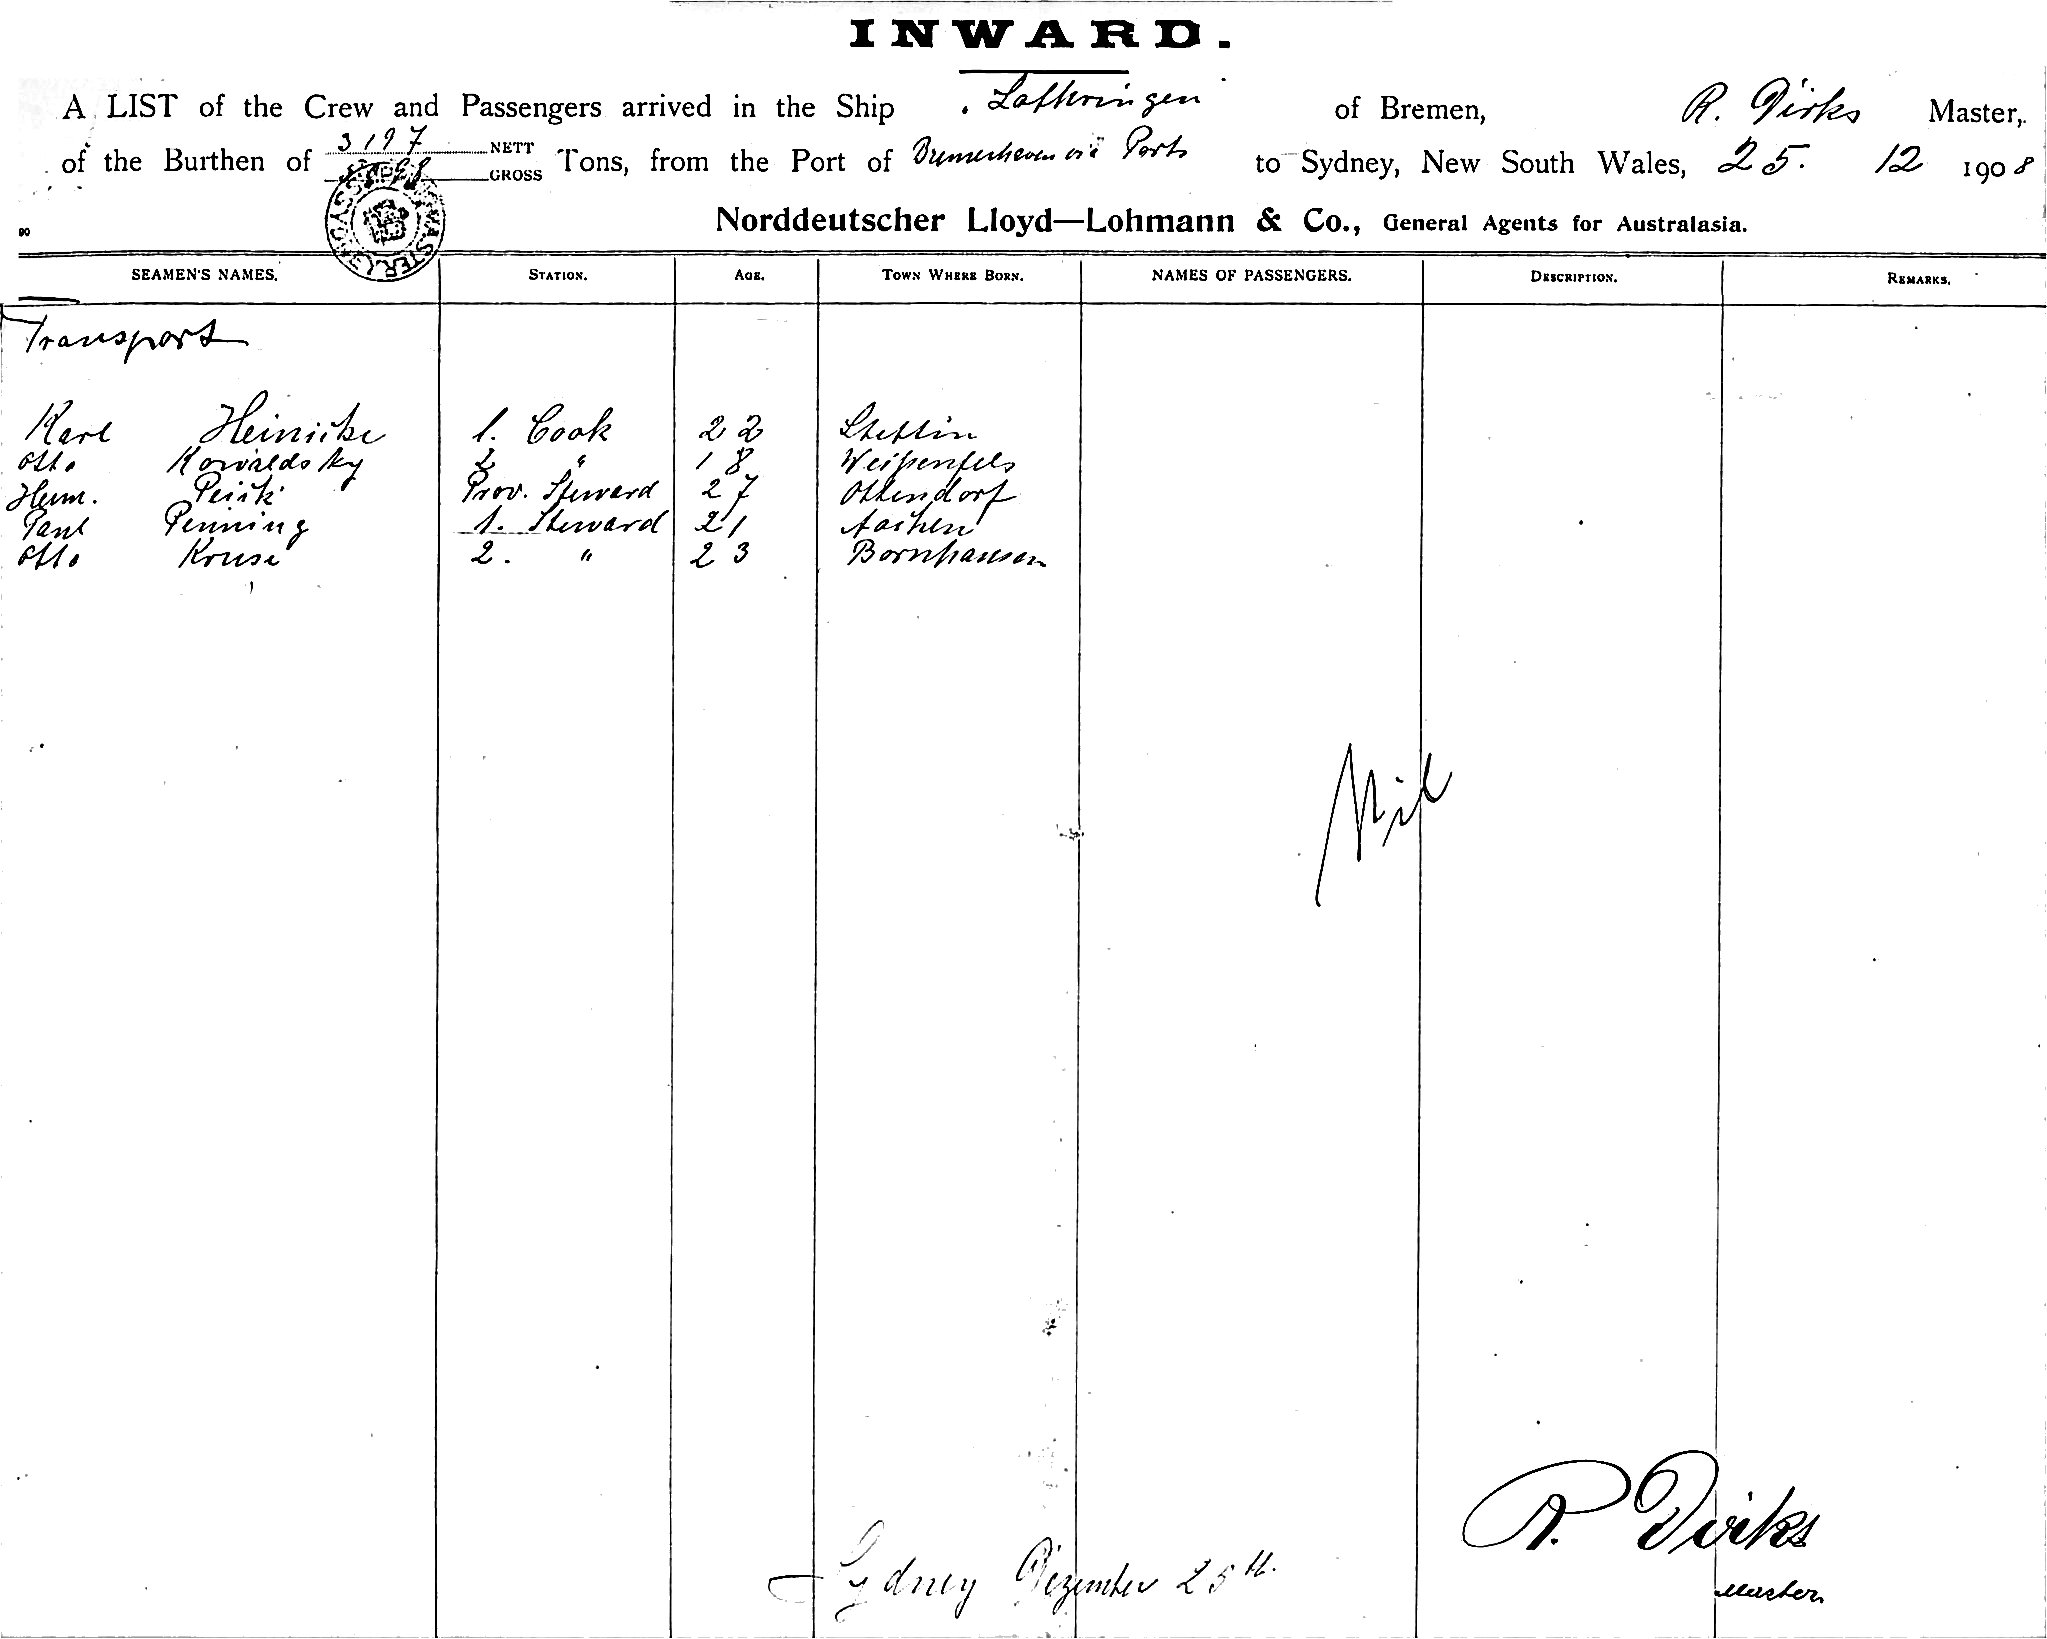 INWARD.
A LIST of the Crew and Passengers arrived in the Ship Lothringen of Bremen, R. Dirks Master,
of the Burthen of 3197 NETT GROSS Tons, from the Port of Bremerhaven via Ports to Sydney, New South Wales, 25. 12 1908
Norddeutscher Lloyd—Lohmann & Co., General Agents for Australasia.
SEAMEN'S NAMES. STATION. AGE. TOWN WHERE BORN. NAMES OF PASSENGERS. DESCRIPTION. REMARKS.
Transport
Karl Heinicke 1. Cook 22 Stettin
Otto Kowaldsky 2 " 18 Weißenfels
Herm. Prov. Steward 27 Ottendorf
Paul Penning 1. Steward 21 Aachen
Otto Kruse 2. " 23 Bornhausen
Nil
R. Dirks
Sydney Dezember 25th.
Master